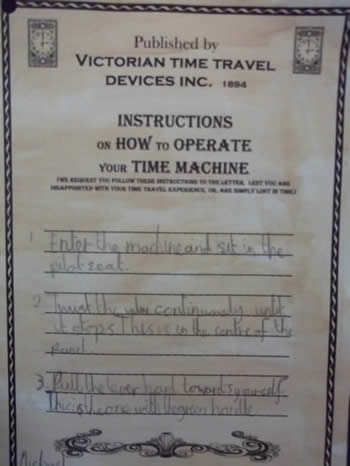 Published by
VICTORIAN TIME TRAVEL
DEVICES INC. 1894
INSTRUCTIONS
ON HOW TO OPERATE
YOUR TIME MACHINE
(WE REQUEST YOU FOLLOW THESE INSTRUCTIONS TO THE LETTER, LEST YOU ARE
DISAPPOINTED WITH YOUR TIME TRAVEL EXPERIENCE, OR, ARE SIMPLY LOST IN TIME)
1 Enter the machine and sit in the
pilot seat.
2. Twist the valve continuously until
it stops. This is in the centre of the
Panel
3. Pull the lever hard towards yourself
This is the one with the green handle